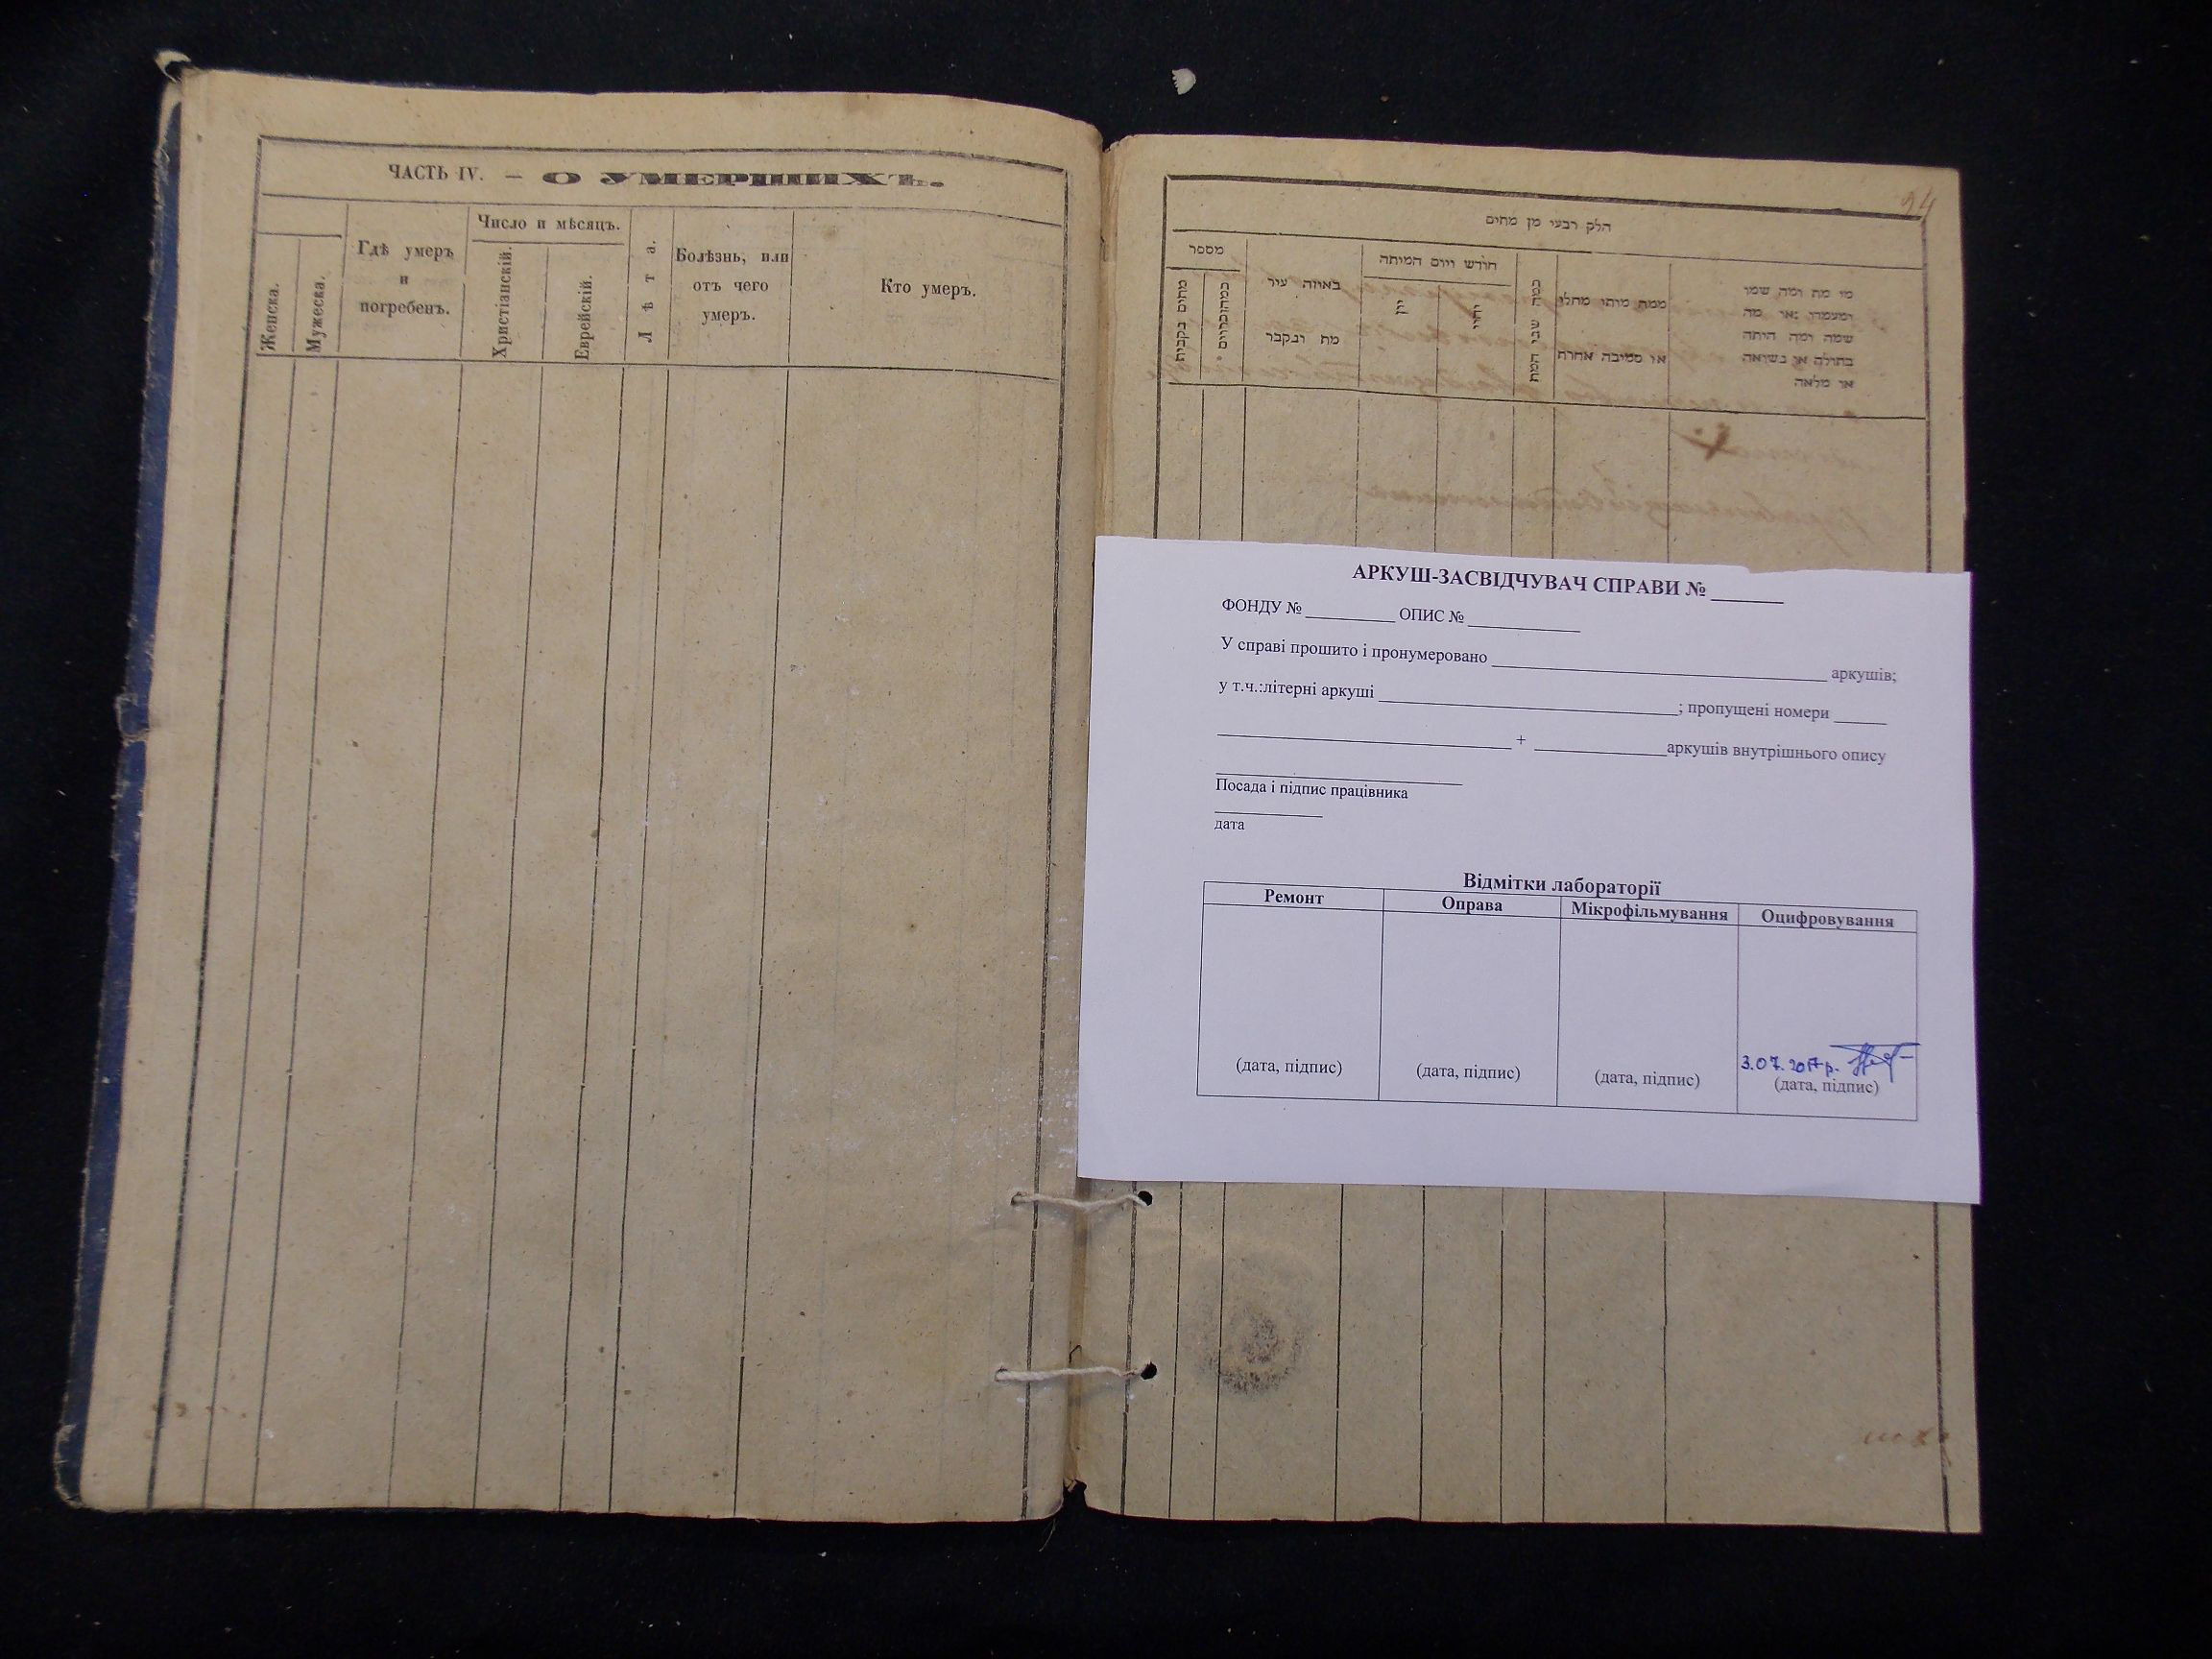 ЧАСТЬ IV. — О УМЕРШИХЪ.
Женска.
Мужеска.
Гдѣ умеръ
и
погребенъ.
Число и мѣсяцъ.
Христіанскій.
Еврейскій.
Лѣта.
Болѣзнь, или
отъ чего
умеръ.
Кто умеръ.
חלק רבעי מן מתים
מספר
באיזה עיר
מת ונקבר
חודש ויום המיתה
כמה שני המת
ממה מותו מחלי
או מסיבה אחרת
מי מת ומה שמו
ומעמדו או מה
שמה ומה היתה
בתולה או נשואה
או אלמנה
АРКУШ-ЗАСВІДЧУВАЧ СПРАВИ № ______
ФОНДУ № ______ ОПИС № ______
У справі прошито і пронумеровано ______ аркушів;
у т.ч.:літерні аркуші ______; пропущені номери ______
______ + ______аркушів внутрішнього опису
Посада і підпис працівника
дата
Відмітки лабораторії
Ремонт Оправа Мікрофільмування Оцифровування
3.07.2017р.
(дата, підпис) (дата, підпис) (дата, підпис) (дата, підпис)